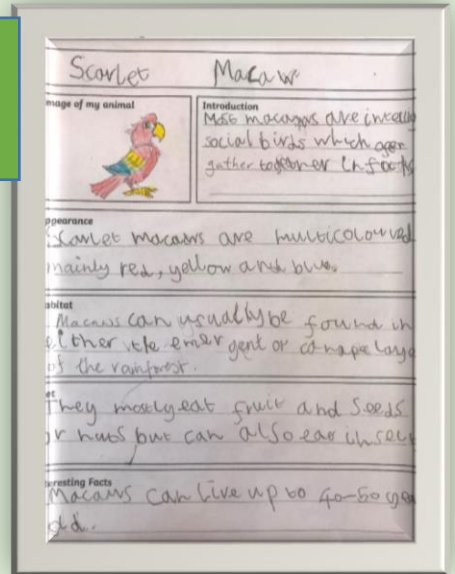 Scarlet Macaw
mage of my animal
Introduction
Most macaws are intellig
social birds which
gather together in
ppearance
Scarlet macaws are multicoloured
mainly red, yellow and blue.
abitat
Macaws can usually be found in
either the emergent or canape laye
of the rainforest.
et
They mostly eat fruit and seeds
or nuts but can also eat insect
eresting Facts
Macaws can live up to 40-50 yea
old.